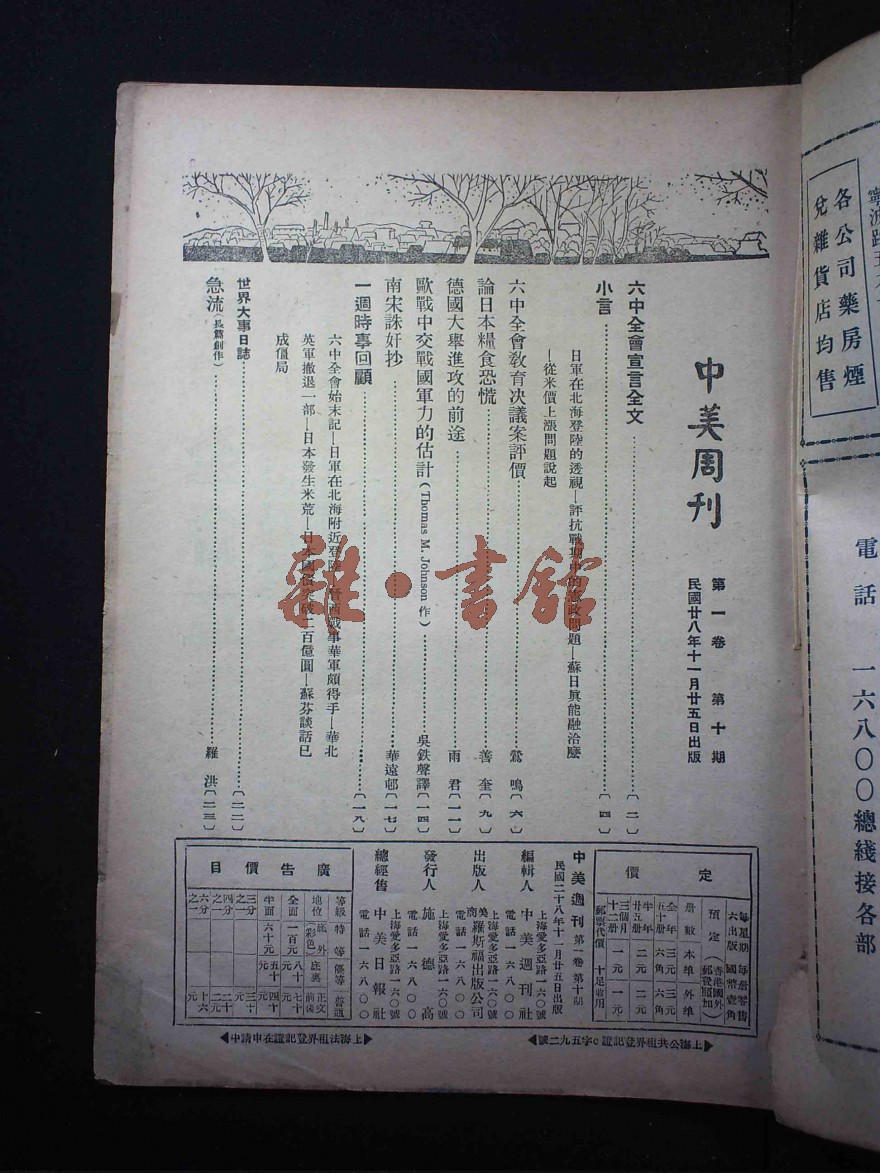 中美周刊
第一卷 第十期
民國廿八年十一月廿五日出版
六中全會宣言全文……(二)
小言……(四)
日軍在北海登陸的透視—評抗戰 問題—蘇日眞能融洽麽
—從米價上漲問題說起
六中全會敎育决議案評價……鴬鳴(六)
論日本糧食恐慌……善奎(九)
德國大舉進攻的前途……雨君(一一)
歐戰中交戰國軍力的估計(Thomas M. Johnson 作)……吳鉄聲譯(一四)
南宋誅奸抄……華遠邨(一七)
一週時事回顧……(一八)
六中全會始末記—日軍在北海附近登陸—晉西戰事華軍頗得手—華北
英軍撤退一部—日本發生米荒—日本國債突破二百億圓—蘇芬談話已
成僵局
世界大事日誌……(二二)
急流(長篇創作)……羅洪(二三)
雜·書館
定價
每星期六出版
每册零售國幣壹角
預定
香港國外郵費照加
册數 本埠 外埠
全年五十册 三元 三元
半年廿五册 六角 六角
三個月十二册 一元 一元
郵票代價 十足通用
中美週刊 第一卷 第十期
民國二十八年十一月廿五日出版
編輯人 中美週刊社
上海愛多亞路一六〇號
電話一六八〇〇
出版人 美商羅斯福出版公司
上海愛多亞路一六〇號
電話一六八〇〇
發行人 施德高
上海愛多亞路一六〇號
電話一六八〇〇
總經售 中美日報社
上海愛多亞路一六〇號
電話一六八〇〇
廣告價目
等級 特等 優等 普通
地位 底外(彩色) 底裏 正文前後
全面 一百元 八十元 七十元
半面 六十元 五十元 四十元
三分之一 三十元
四分之一 二十二元
六分之一 十六元
上海公共租界登記證C字五九二號
上海法租界登記證在申請中
各公司藥房煙
兌雜貨店均售
電話 一六八〇〇總綫接各部